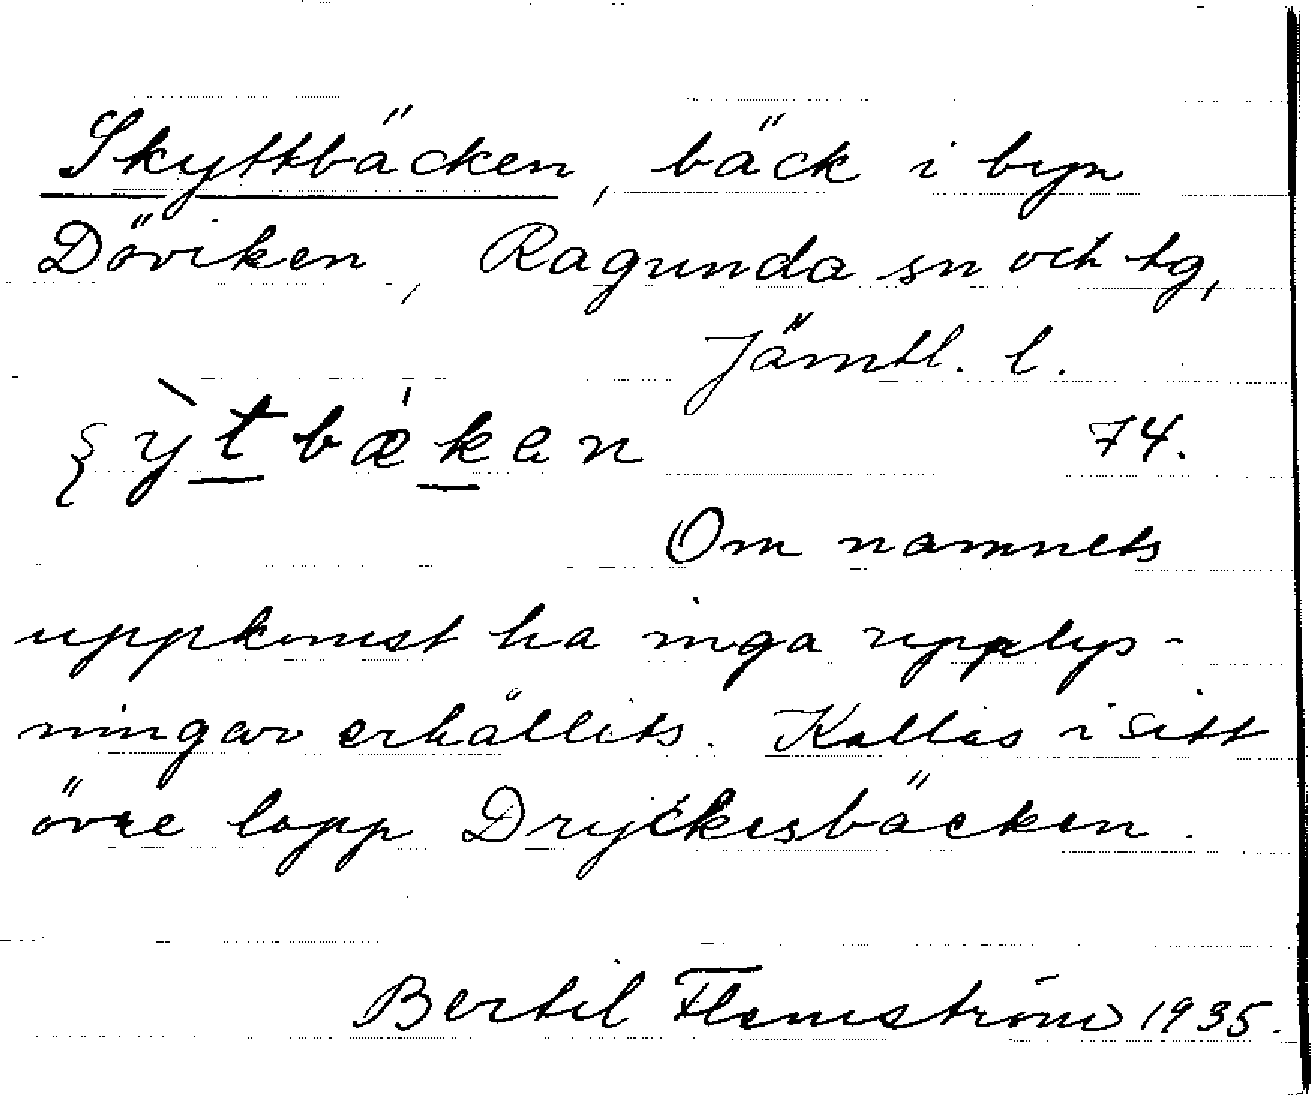 Skyttbäcken, bäck i byn
Döviken, Ragunda sn och tg,
Jämtl. l.
ʂỳtbækan 74.
Om namnets
uppkomst ha inga upplys-
ningar erhållits. Kallas i sitt
övre lopp Dryckesbäcken.
Bertil Flemström 1935.